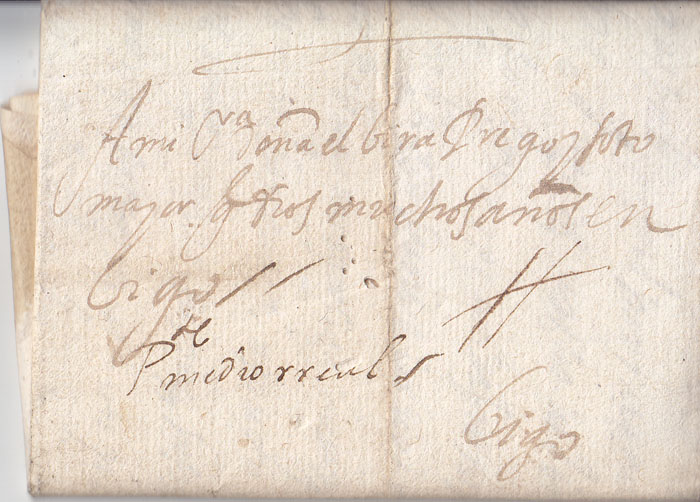 A mi Sra doña elbira Prego y soto
mayor g dios muchos años en
bigo
Pte medio rreal
bigo